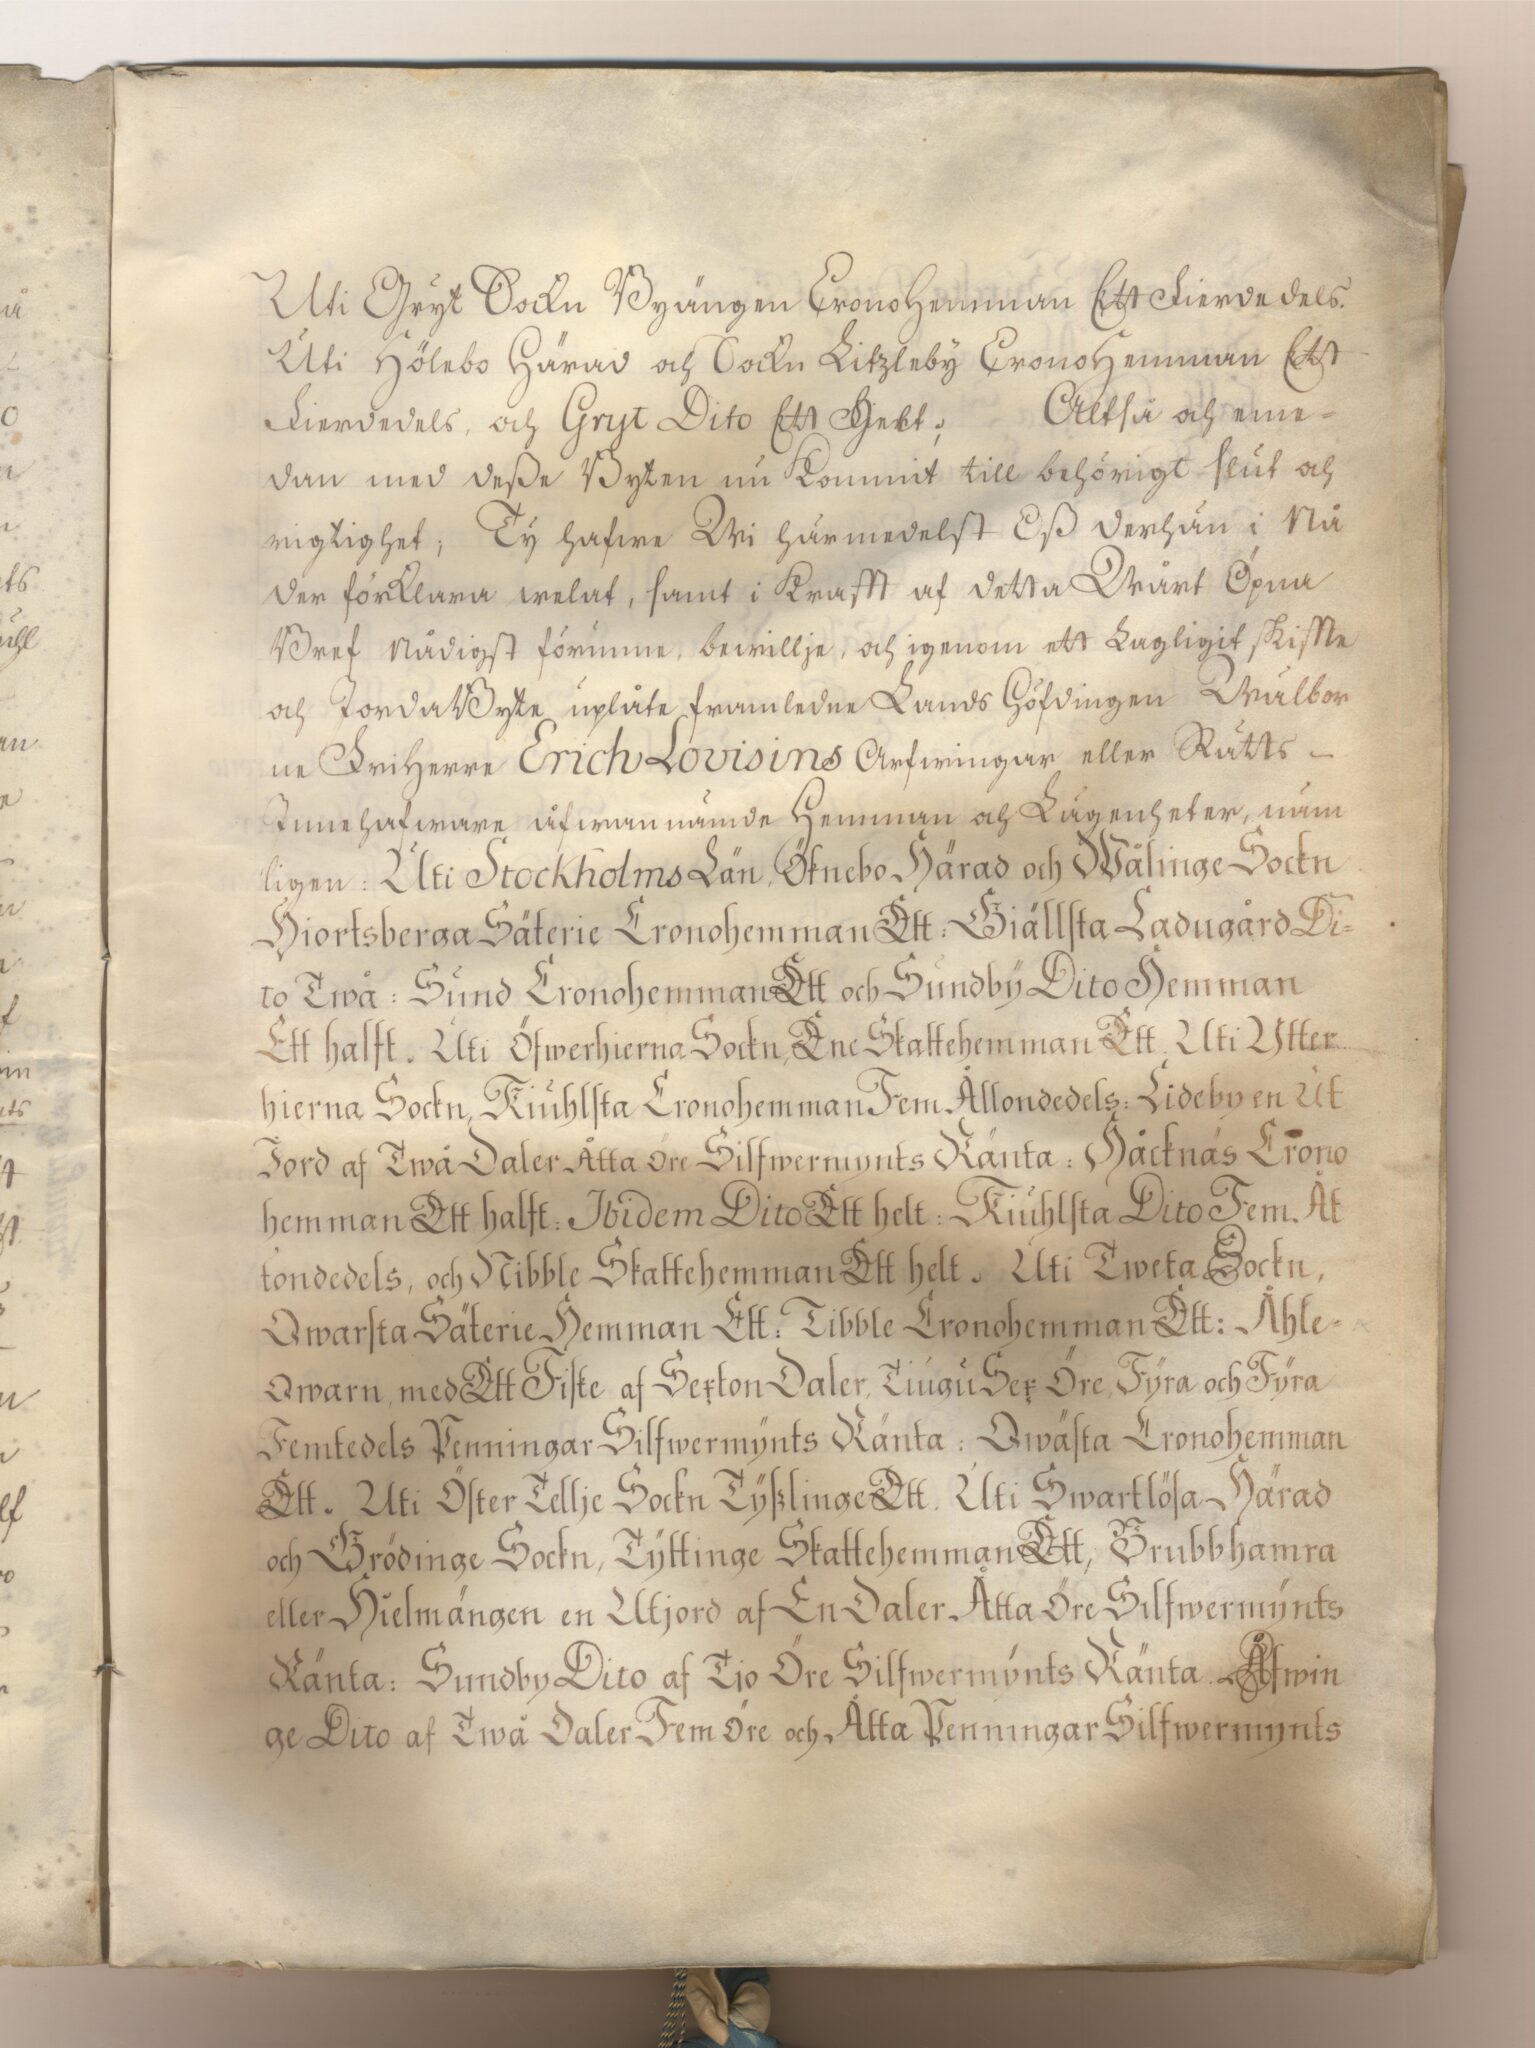 Uti Gryt Sockn Byängen CronoHemman Ett Fierdedels.
Uti Hölebo Härad och Sockn Litzleby CronoHemman Ett
Fierdedels, och Gryt Dito Ett Helt; Altså och eme-
dan med deße Byten nu Kommit till behörigt slut och
rigtighet; Ty hafwe Wi härmedelst Oß derhän i Nå
der förklara welat, samt i Krafft af detta Wårt Öpna
Bref Nådigst förunne, bewillje, och igenom ett Lagligit skiffte
och JordaByte uplåte framledne LandsHöfdingen Wälbor
ne FriHerre Erich Lovisins Arfwingar eller Rätts-
Innehafware åfwannämde Hemman och Lägenheter, näm
ligen: Uti Stockholms Län, Öknebo Härad och Wålinge Sockn
Hiortsberga Säterie Cronohemman Ett: Giällsta Ladugård Di-
to Twå: Sund Cronohemman Ett och Sundby Dito Hemman
Ett halft. Uti Öfwerhierna Sockn, Ene Skattehemman Ett. Uti Ytter
hierna Sockn, Kiuhlsta Cronohemman Fem Åttondedels: Lideby en Ut
Jord af Twå Daler Åtta Öre Silfwermynts Ränta: Håcknäs Crono
hemman Ett halft: Ibidem Dito Ett helt: Kiuhlsta Dito Fem Åt
tondedels, och Nibble Skattehemman Ett helt. Uti Tweta Sockn,
Qwarsta Säterie Hemman Ett: Tibble Cronohemman Ett: Åhle-
Qwarn, med Ett Fiske af Sexton Daler, Tiugu Sex Öre, Fyra och Fyra
Femtedels Penningar Silfwermynts Ränta: Qwästa Cronohemman
Ett. Uti Öster Tellje Sockn Tyßlinge Ett. Uti Swartlösa Härad
och Grödinge Sockn, Tyttinge Skattehemman Ett, Brubbhamra
eller Hielmängen en Utjord af En Daler Åtta Öre Silfwermynts
Ränta: Sundby Dito af Tio Öre Silfwermynts Ränta. Åfwin
ge Dito af Twå Daler Fem Öre och Åtta Penningar Silfwermynts